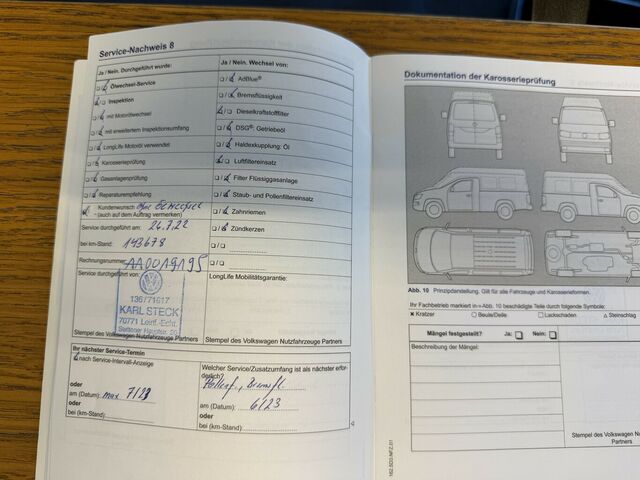 Service-Nachweis 8
Ja / Nein. Durchgeführt wurde:
Ölwechsel-Service
Inspektion
mit Motorölwechsel
mit erweitertem Inspektionsumfang
LongLife Motoröl verwendet
Karosserieprüfung
Gasanlagenprüfung
Reparaturempfehlung
Kundenwunsch
- (auch auf dem Auftrag vermerken)
Service durchgeführt am: 26.7.22
bei km-Stand: 143678
Rechnungsnummer: AA0019195
Service durchgeführt von:
136/71617
KARL STECK
70771 Leinf.-Echt.
Stempel des Volkswagen Nutzfahrzeuge Partners
Ja / Nein. Wechsel von:
AdBlue®
Bremsflüssigkeit
Dieselkraftstofffilter
DSG®: Getriebeöl
Haldexkupplung: Öl
Luftfiltereinsatz
Filter Flüssiggasanlage
Staub- und Pollenfiltereinsatz
Zahnriemen
Zündkerzen
LongLife Mobilitätsgarantie:
Stempel des Volkswagen Nutzfahrzeuge Partners
Ihr nächster Service-Termin
nach Service-Intervall-Anzeige
oder
am (Datum): max 7/23
oder
bei (km-Stand):
Welcher Service/Zusatzumfang ist als nächster erfor-
derlich?
Pollenf., Bremsfl.
am (Datum): 6/23
oder
bei (km-Stand):
Dokumentation der Karosserieprüfung
Abb. 10 Prinzipdarstellung. Gilt für alle Fahrzeuge und Karosserieformen.
Ihr Fachbetrieb markiert in ⇒ Abb. 10 beschädigte Teile durch folgende Symbole:
× Kratzer ○ Beule/Delle □ Lackschaden △ Steinschlag
Mängel festgestellt? Ja: Nein:
Beschreibung der Mängel:
Stempel des Volkswagen
Partners
162.5D3.NFZ.01